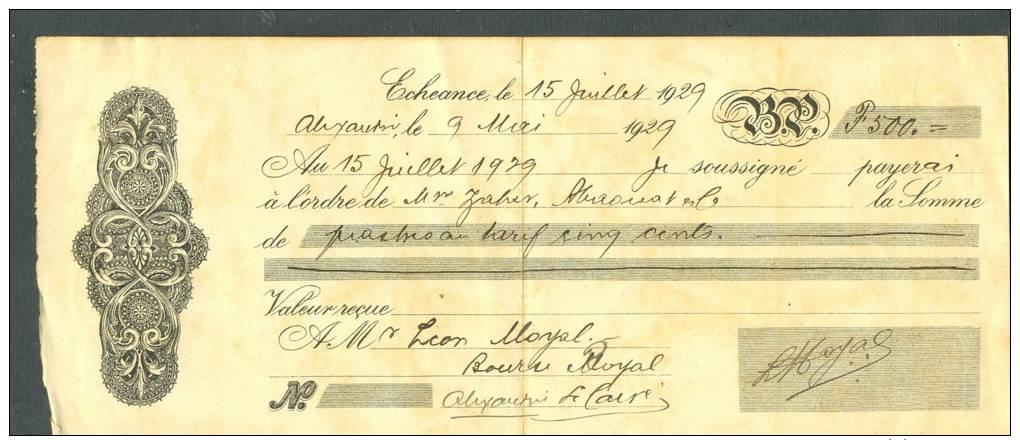 Echeance, le 15 Juillet 1929
Alexandrie, le 9 Mai 1929 B.P. P 500. =
Au 15 Juillet 1929 Je soussigné payerai
à l'ordre de Mrs Zaher, & Co la Somme
de piastres au tarif cinq cents.
Valeur reçue
A Mr Léon Moyal
Bourse Royal
No. Alexandrie Le Caire
LMoyal